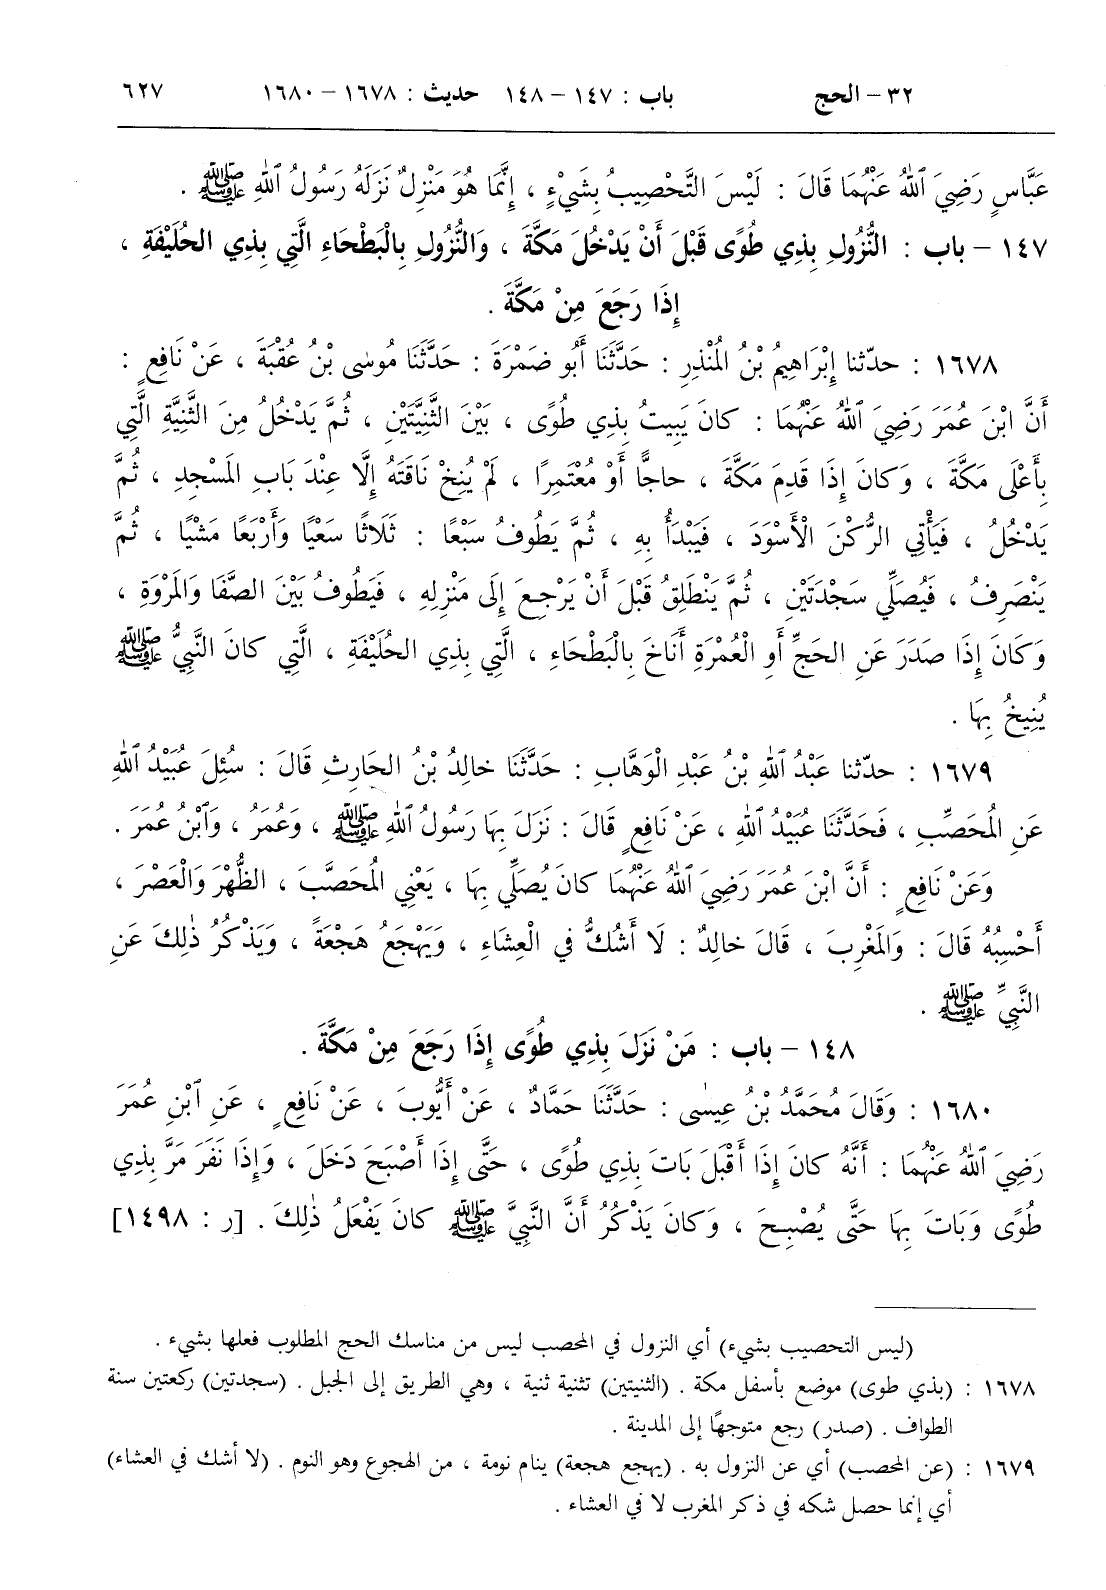 ٣٢ – الحج باب : ١٤٧ – ١٤٨ حديث : ١٦٧٨ – ١٦٨٠ ٦٢٧
عَبَّاسٍ رَضِيَ ٱللهُ عَنْهُمَا قَالَ : لَيْسَ التَّحْصِيبُ بِشَيْءٍ ، إِنَّمَا هُوَ مَنْزِلٌ نَزَلَهُ رَسُولُ ٱللهِ ﷺ .
١٤٧ – باب : النُّزُولِ بِذِي طُوًى قَبْلَ أَنْ يَدْخُلَ مَكَّةَ ، وَالنُّزُولِ بِالْبَطْحَاءِ الَّتِي بِذِي الحُلَيْفَةِ ،
إِذَا رَجَعَ مِنْ مَكَّةَ .
١٦٧٨ : حدّثنا إِبْرَاهِيمُ بْنُ المُنْذِرِ : حَدَّثَنَا أَبُو ضَمْرَةَ : حَدَّثَنَا مُوسٰى بْنُ عُقْبَةَ ، عَنْ نَافِعٍ :
أَنَّ ابْنَ عُمَرَ رَضِيَ ٱللهُ عَنْهُمَا : كانَ يَبِيتُ بِذِي طُوًى ، بَيْنَ الثَّنِيَّتَيْنِ ، ثُمَّ يَدْخُلُ مِنَ الثَّنِيَّةِ الَّتِي
بِأَعْلَى مَكَّةَ ، وَكانَ إِذَا قَدِمَ مَكَّةَ ، حاجًّا أَوْ مُعْتَمِرًا ، لَمْ يُنِخْ نَاقَتَهُ إِلَّا عِنْدَ بَابِ المَسْجِدِ ، ثُمَّ
يَدْخُلُ ، فَيَأْتِي الرُّكْنَ الْأَسْوَدَ ، فَيَبْدَأُ بِهِ ، ثُمَّ يَطُوفُ سَبْعًا : ثَلَاثًا سَعْيًا وَأَرْبَعًا مَشْيًا ، ثُمَّ
يَنْصَرِفُ ، فَيُصَلِّي سَجْدَتَيْنِ ، ثُمَّ يَنْطَلِقُ قَبْلَ أَنْ يَرْجِعَ إِلَى مَنْزِلِهِ ، فَيَطُوفُ بَيْنَ الصَّفَا وَالمَرْوَةِ ،
وَكَانَ إِذَا صَدَرَ عَنِ الحَجِّ أَوِ الْعُمْرَةِ أَنَاخَ بِالْبَطْحَاءِ ، الَّتِي بِذِي الحُلَيْفَةِ ، الَّتِي كانَ النَّبِيُّ ﷺ
يُنِيخُ بِهَا .
١٦٧٩ : حدّثنا عَبْدُ ٱللهِ بْنُ عَبْدِ الْوَهَّابِ : حَدَّثَنَا خالِدُ بْنُ الحَارِثِ قَالَ : سُئِلَ عُبَيْدُ ٱللهِ
عَنِ المُحَصَّبِ ، فَحَدَّثَنَا عُبَيْدُ ٱللهِ ، عَنْ نَافِعٍ قَالَ : نَزَلَ بِهَا رَسُولُ ٱللهِ ﷺ ، وَعُمَرُ ، وَٱبْنُ عُمَرَ .
وَعَنْ نَافِعٍ : أَنَّ ابْنَ عُمَرَ رَضِيَ ٱللهُ عَنْهُمَا كانَ يُصَلِّي بِهَا ، يَعْنِي المُحَصَّبَ ، الظُّهْرَ وَالْعَصْرَ ،
أَحْسِبُهُ قَالَ : وَالمَغْرِبَ ، قَالَ خالِدٌ : لَا أَشُكُّ فِي الْعِشَاءِ ، وَيَهْجَعُ هَجْعَةً ، وَيَذْكُرُ ذٰلِكَ عَنِ
النَّبِيِّ ﷺ .
١٤٨ – باب : مَنْ نَزَلَ بِذِي طُوًى إِذَا رَجَعَ مِنْ مَكَّةَ .
١٦٨٠ : وَقَالَ مُحَمَّدُ بْنُ عِيسٰى : حَدَّثَنَا حَمَّادٌ ، عَنْ أَيُّوبَ ، عَنْ نَافِعٍ ، عَنِ ٱبْنِ عُمَرَ
رَضِيَ ٱللهُ عَنْهُمَا : أَنَّهُ كانَ إِذَا أَقْبَلَ بَاتَ بِذِي طُوًى ، حَتَّى إِذَا أَصْبَحَ دَخَلَ ، وَإِذَا نَفَرَ مَرَّ بِذِي
طُوًى وَبَاتَ بِهَا حَتَّى يُصْبِحَ ، وَكانَ يَذْكُرُ أَنَّ النَّبِيَّ ﷺ كانَ يَفْعَلُ ذٰلِكَ . [ر : ١٤٩٨]
(ليس التحصيب بشيء) أي النزول في المحصب ليس من مناسك الحج المطلوب فعلها بشيء .
١٦٧٨ : (بذي طوى) موضع بأسفل مكة . (الثنيتين) تثنية ثنية ، وهي الطريق إلى الجبل . (سجدتين) ركعتين سنة
الطواف . (صدر) رجع متوجهًا إلى المدينة .
١٦٧٩ : (عن المحصب) أي عن النزول به . (يهجع هجعة) ينام نومة ، من الهجوع وهو النوم . (لا أشك في العشاء)
أي إنما حصل شكه في ذكر المغرب لا في العشاء .